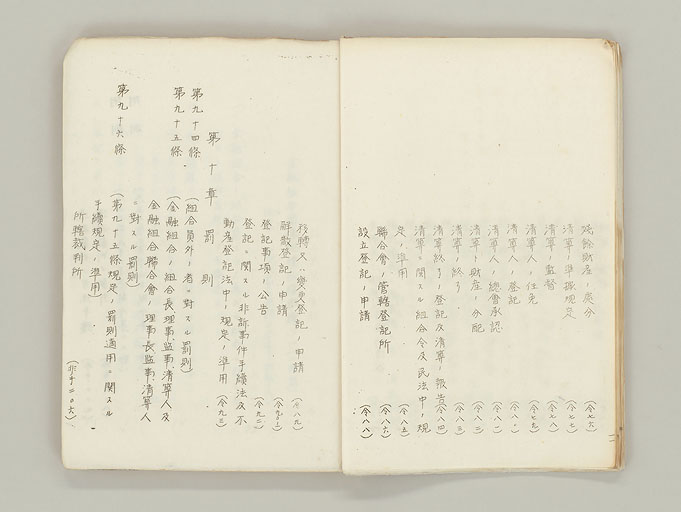 残餘財産ノ處分 (令七六)
清算ノ準據規定 (令七七)
清算ノ監督 (令七八)
清算人ノ任免 (令七九)
清算人ノ登記 (令八〇)
清算人ノ總會承認 (令八一)
清算ノ財産ノ分配 (令八二)
清算ノ終了 (令八三)
清算終了ノ登記及清算ノ報告 (令八四)
清算ニ関スル組合令及民法中ノ規
定ノ準用 (令八五)
聯合會ノ管轄登記所 (令八六)
設立登記ノ申請 (令八八)
移轉又ハ變更登記ノ申請 (令八九)
解散登記ノ申請 (令九〇)
登記事項ノ公告 (令九二)
登記ニ関スル非訟事件手續法及不
動産登記法中ノ規定ノ準用 (令九三)
第十章 罰則
第九十四條 (組合員外ノ者ニ對スル罰則)
第九十五條 (金融組合ノ組合長理事監事清算人及
金融組合聯合會ノ理事長監事清算人
ニ對スル罰則)
第九十六條 (第九十五條規定ノ罰則適用ニ関スル
手續規定ノ準用)
所轄裁判所 (非手二〇六)